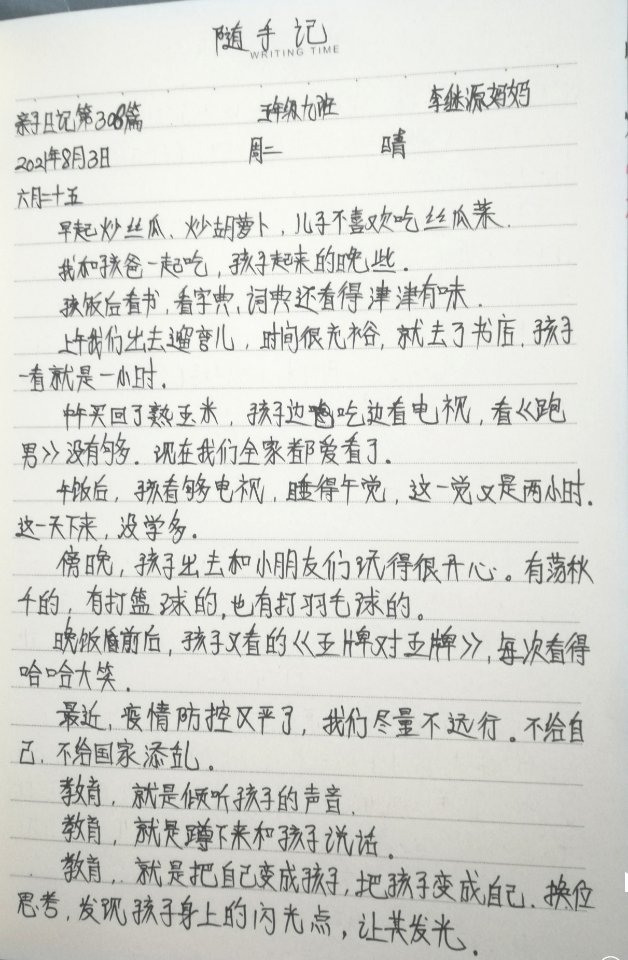 随手记
WRITING TIME
亲子日记第308篇 五年级九班 李继源妈妈
2021年8月3日 周二 晴
六月二十五
早起炒丝瓜、炒胡萝卜,儿子不喜欢吃丝瓜菜.
我和孩爸一起吃,孩子起来的晚些.
孩饭后看书,看字典,词典还看得津津有味.
上午我们出去遛弯儿,时间很充裕,就去了书店.孩子
一看就是一小时.
中午买回了熟玉米,孩子边吃边看电视,看《跑
男》没有够多.现在我们全家都爱看了.
午饭后,孩看够电视,睡得午觉,这一觉又是两小时.
这一天下来,没学多.
傍晚,孩子出去和小朋友们玩得很开心。有荡秋
千的,有打篮球的,也有打羽毛球的。
晚饭前后,孩子又看的《王牌对王牌》,每次看得
哈哈大笑.
最近,疫情防控又严了,我们尽量不远行。不给自
己.不给国家添乱。
教育,就是倾听孩子的声音.
教育,就是蹲下来和孩子说话.
教育,就是把自己变成孩子,把孩子变成自己.换位
思考,发现孩子身上的闪光点,让其发光.